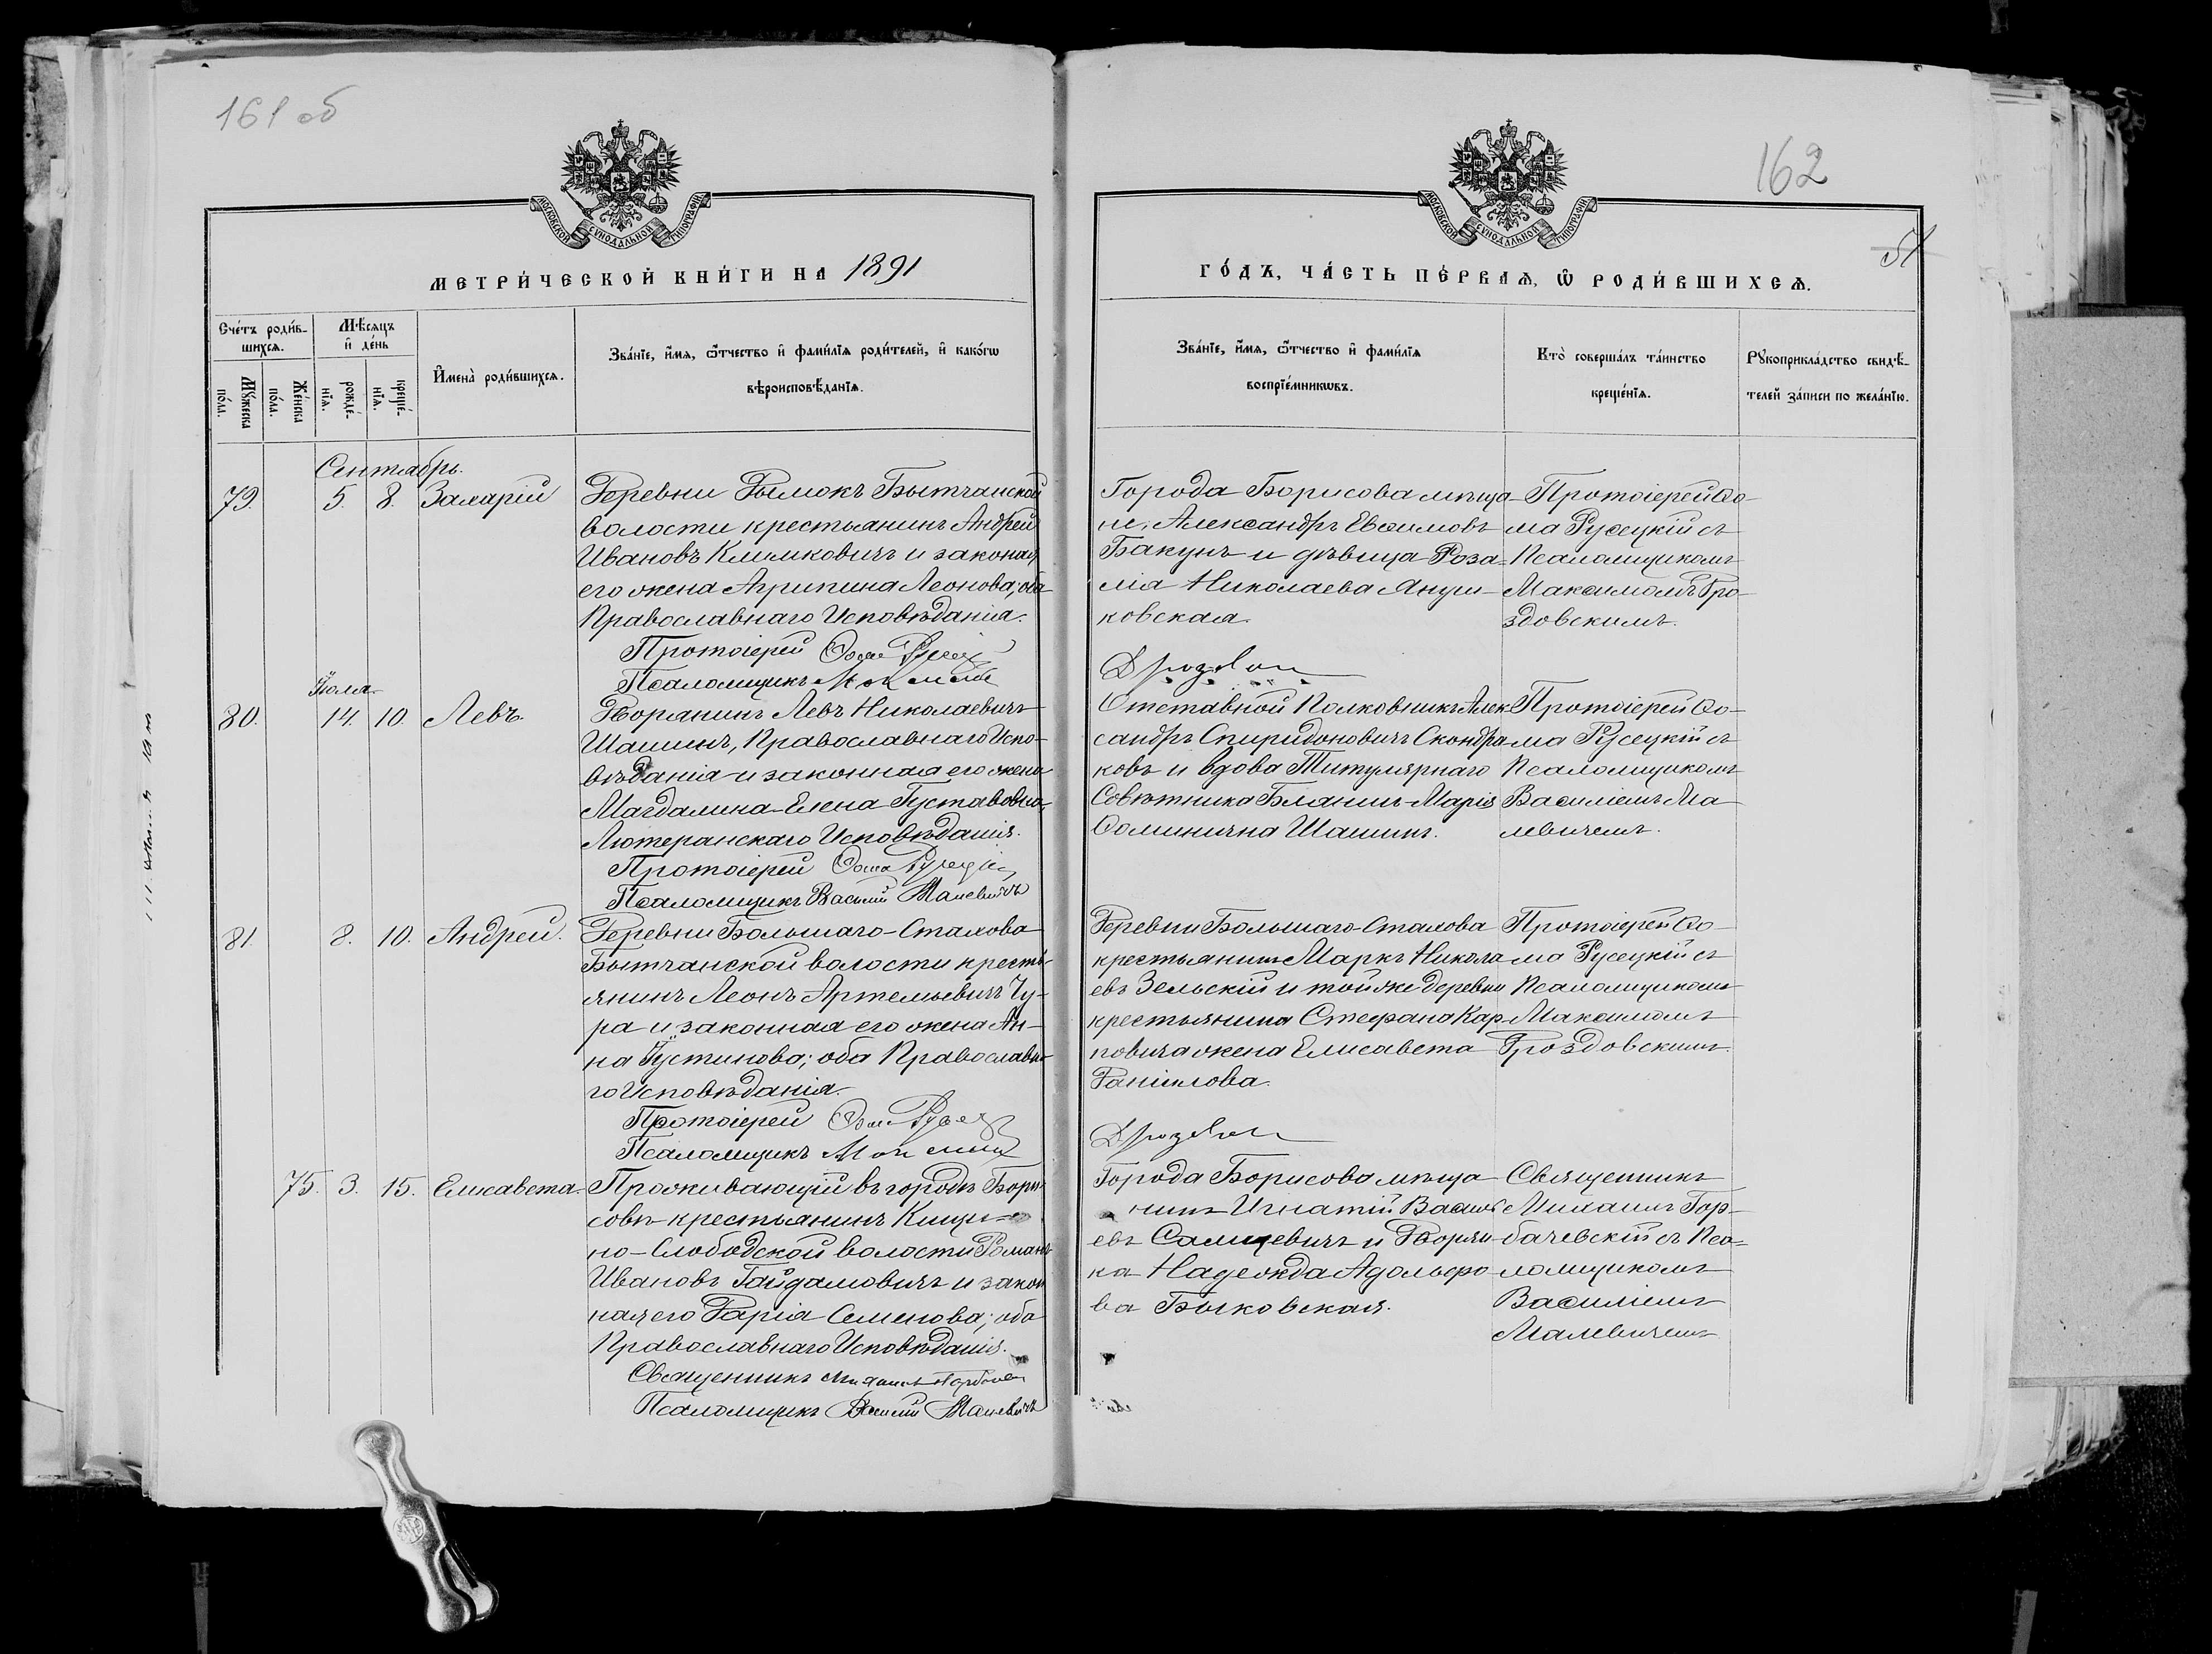 161 об
162
51
МОСКОВСКОЙ СУНОДАЛЬНОЙ ТИПОГРАФІИ
МОСКОВСКОЙ СУНОДАЛЬНОЙ ТИПОГРАФІИ
МЕТРИ́ЧЕСКОЙ КНИ́ГИ НА 1891
Сче́тъ роди́в-
шихсѧ.
Мѣ́сѧцъ
и҆ де́нь
Мꙋ́жеска
по́ла.
Же́нска
по́ла.
рожде́-
нїѧ.
креще́-
нїѧ.
И҆мена̀ роди́вшихсѧ.
Зва́нїе, и҆́мѧ, ѻ҆́тчество и҆ фами́лїѧ роди́телей, и҆ како́гѡ
вѣроисповѣ́данїѧ.
Сентябрь.
79. 5. 8. Захарій
Деревни Дымокъ Бытчанской
волости крестьянинъ Андрей
Ивановъ Климковичъ и законая
его жена Агрипина Леонова; оба
Православнаго Исповѣданія.
Протоіерей Ѳома
Псаломщикъ
Іюля
80. 14. 10. Левъ.
Дворянинъ Левъ Николаевичъ
Шашинъ, Православнаго Испо-
вѣданія и законная его жена
Магдалина-Елена Густавовна,
Лютеранскаго Исповѣданія.
Протоіерей Ѳома Русецкій
Псаломщикъ Василій Малевичъ
81. 8. 10. Андрей.
Деревни Большаго-Стахова
Бытчанской волости кресть-
янинъ Леонъ Артемьевичъ Чу-
ра и законная его жена Ан-
на Іустинова; оба Православна-
го Исповѣданія.
Протоіерей Ѳома
Псаломщикъ
75. 3. 15. Елисавета.
Проживающій въ городѣ Бори-
совѣ крестьянинъ Кищи-
но-Слободской волости Романъ
Ивановъ Гайдамовичъ и закон
ная его Дарія Семенова; оба
Православнаго Исповѣданія.
Священникъ Михаилъ
Псаломщикъ Василій Малевичъ
ГО́ДЪ, ЧА́СТЬ ПЕ́РВАѦ, Ѡ҆ РОДИ́ВШИХСѦ.
Зва́нїе, и҆́мѧ, ѻ҆́тчество и҆ фами́лїѧ
воспрїе́мникѡвъ.
Кто̀ соверша́лъ та́инство
креще́нїѧ.
Рꙋкоприкла́дство свидѣ́-
телей за́писи по жела́нїю.
Города Борисова мѣща-
не, Александръ Евѳимовъ
Бакунъ и дѣвица Роза-
лія Николаева Януш-
ковская.
Протоіерей Ѳо-
ма Русецкій съ
Псаломщикомъ
Максимомъ Дро-
здовскимъ.
Отставной Полковникъ Алек
сандръ Спиридоновичъ Скондра
ковъ и вдова Титулярнаго
Совѣтника Марія
Ѳоминична Шашинъ.
Протоіерей Ѳо-
ма Русецкій съ
Псаломщикомъ
Василіемъ Ма-
левичемъ.
Деревни Большаго-Стахова
крестьянинъ Маркъ Никола
евъ Зельскій и той же деревни
крестьянина Стефана Кар
повича жена Елисавета
Даніилова.
Протоіерей Ѳо-
ма Русецкій съ
Псаломщикомъ
Максимомъ
Дроздовскимъ.
Города Борисова мѣща-
нинъ Игнатій Василь
евъ и Дворян
ка Надежда Адольфо-
ва Быковская.
Священникъ
Михаилъ Гор-
бачевскій съ Пса-
ломщикомъ
Василіемъ
Малевичемъ